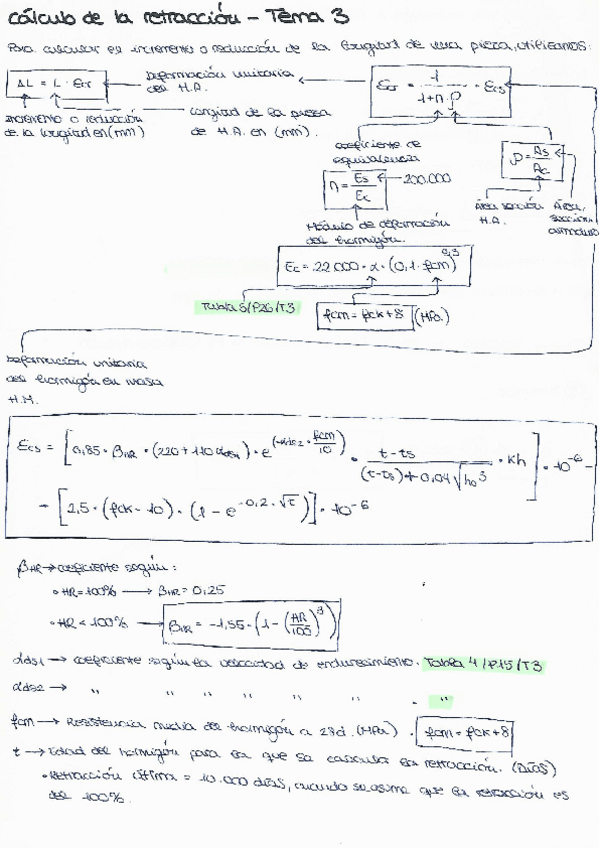 cálculo de la retracción - Tema 3
Para calcular el incremento o reducción de la longitud de una pieza, utilizamos:
ΔL = L · εcr
Deformación unitaria del H.A.
εcr = 1 / (1 + n · ρ) · εcs
Incremento o reducción de la longitud en (mm)
Longitud de la pieza de H.A. en (mm).
coeficiente de equivalencia
n = Es / Ec
200.000
ρ = As / Ac
Área sección H.A.
Área sección armadura
Módulo de deformación del hormigón.
Ec = 22.000 · α · (0,1 · fcm)^0,3
Tabla 5/P26/T3
fcm = fck + 8 (MPa)
Deformación unitaria
del hormigón en masa
H.M.
εcs = [0,85 · βHR · (220 + 110 αds1) · e^(-αds2 · fcm/10) · (t - ts) / ((t - ts) + 0,04 √ho³) · kh] · 10^-6 -
- [2,5 · (fck - 10) · (1 - e^(-0,2 · √t))] · 10^-6
βHR → coeficiente según:
· HR = 100% → βHR = 0,25
· HR < 100% → βHR = -1,55 · (1 - (HR/100)^3)
αds1 → coeficiente según la velocidad de endurecimiento. Tabla 4/P15/T3
αds2 → " " " " " " . "
fcm → Resistencia media del hormigón a 28d. (MPa) · fcm = fck + 8
t → Edad del hormigón para la que se calcula la retracción. (DÍAS)
· Retracción última = 10.000 días, cuando se asume que la retracción es
del 100%.